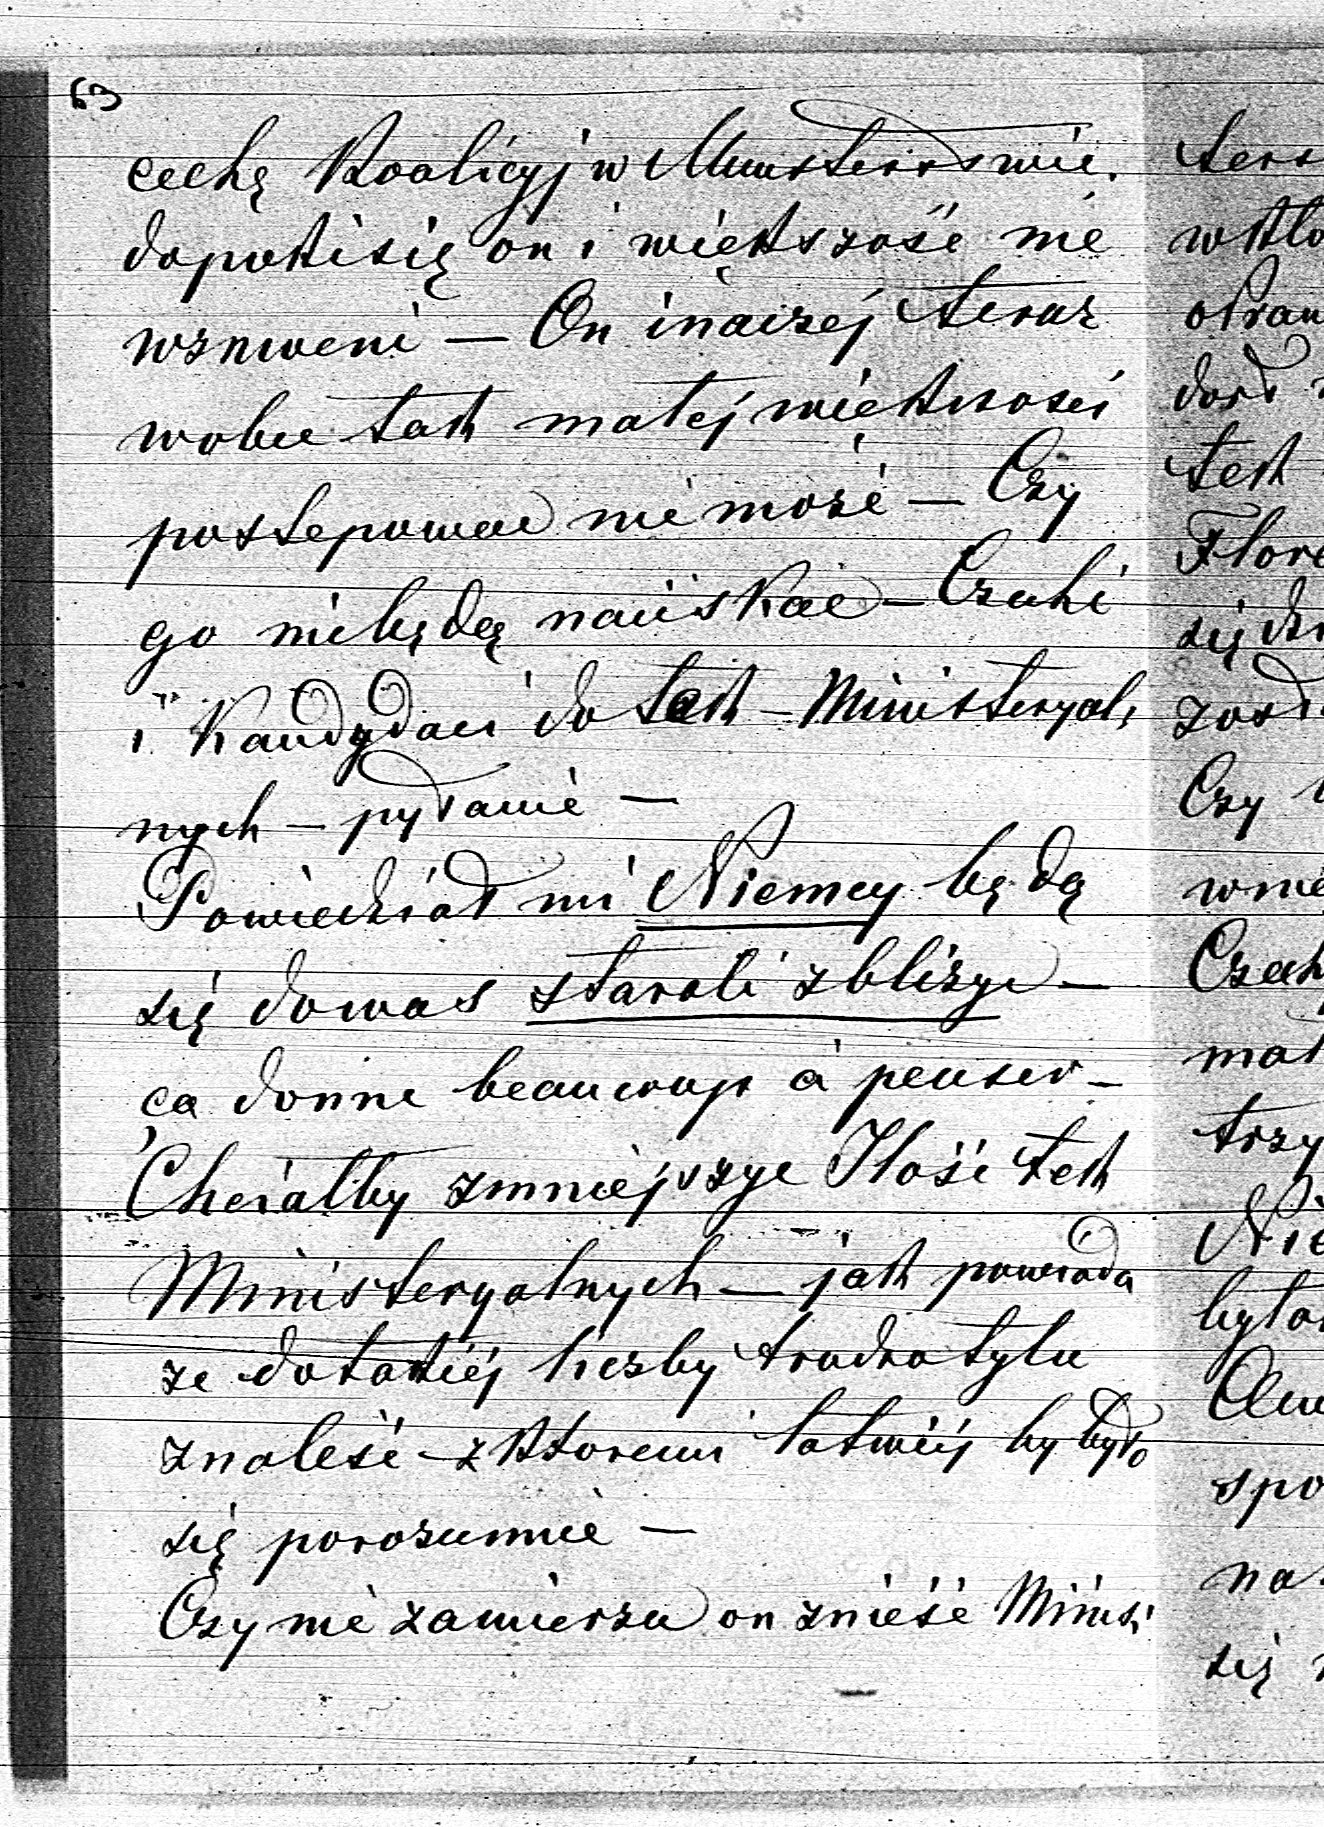 63
cechę Koalicyj w Ministerstwie.
dopokisię on i większość nie
wzmocni — On inaczej teraz
wobec tak małej większości
postepować nie može — Czy
go niebędą naciskać — Czechi
i Kandydaci do tek — Ministeryal,
nych — pytanie —
Powiedział mi Niemcy będą
się dowas starali zbliżyć —
ça donne beaucoup à penser —
Chciałby zmniejszyć Ilość tek
Ministeryalnych — jak powiada
ze dotakiej liczby trudno tylu
znaleść — z Ktoremi łatwiej by było
się porozumieć —
Czy nie zamierza on znieść Minist